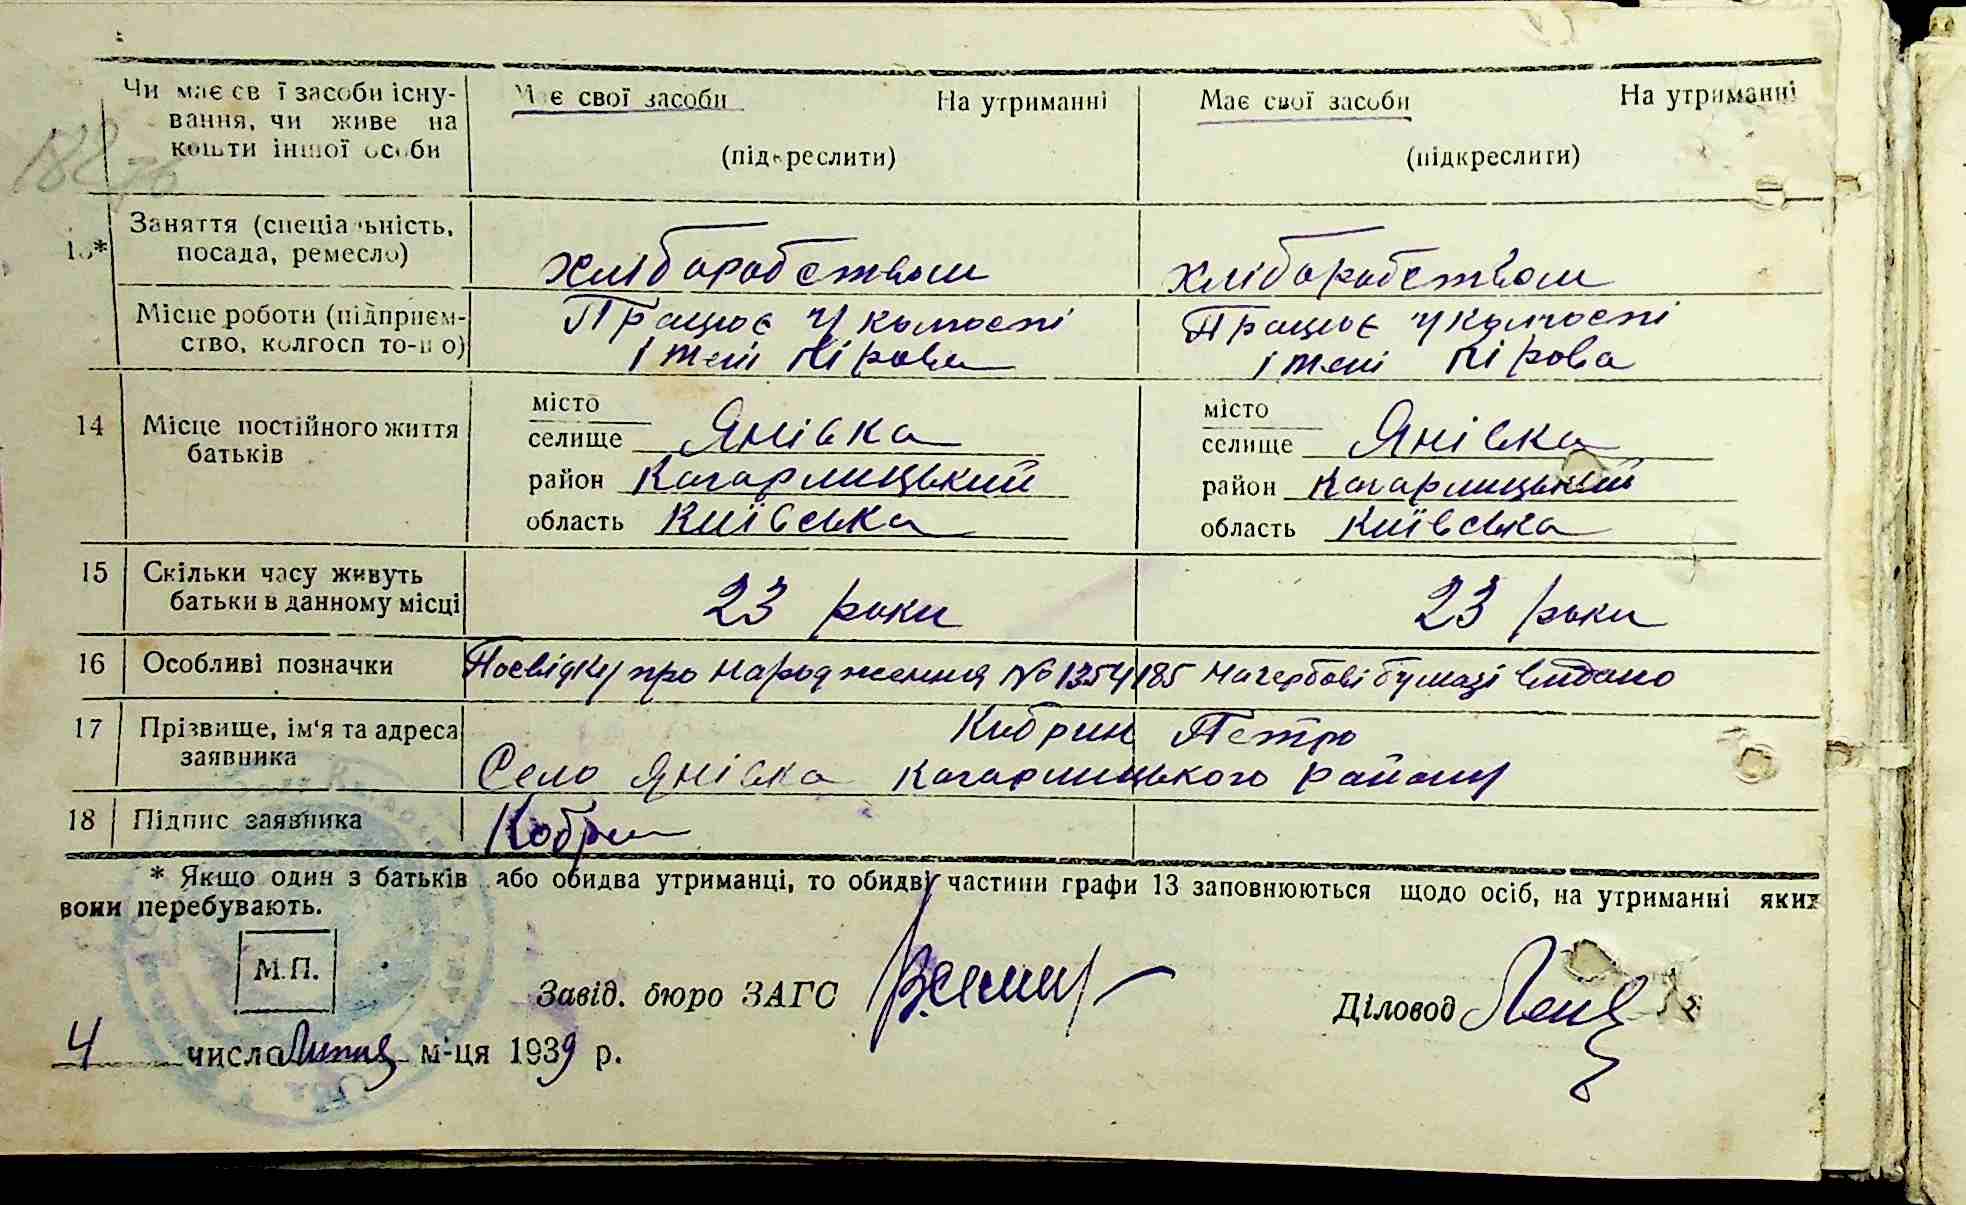 Чи має свої засоби існу-
вання, чи живе на
кошти іншої особи
Має свої засоби На утриманні
(підкреслити)
Має свої засоби На утриманні
(підкреслити)
13*
Заняття (спеціальність,
посада, ремесло)
хліборобством
хліборобством
Місце роботи (підприєм-
ство, колгосп то-що)
Працює у колгоспі
імені Кірова
Працює у колгоспі
імені Кірова
14 Місце постійного життя
батьків
місто
селище Янівка
район Кагарлицький
область Київська
місто
селище Янівка
район Кагарлицький
область Київська
15 Скільки часу живуть
батьки в данному місці
23 роки
23 роки
16 Особливі позначки
Посвідку про народження №1354185 на гербові бумазі видано
17 Прізвище, ім'я та адреса
заявника
Кобрин Петро
Село Янівка Кагарлицького району
18 Підпис заявника
Кобрин
* Якщо один з батьків або обидва утриманці, то обидві частини графи 13 заповнюються щодо осіб, на утриманні яких
вони перебувають.
М.П.
Завід. бюро ЗАГС
Діловод
4 числа Липня м-ця 1939 р.